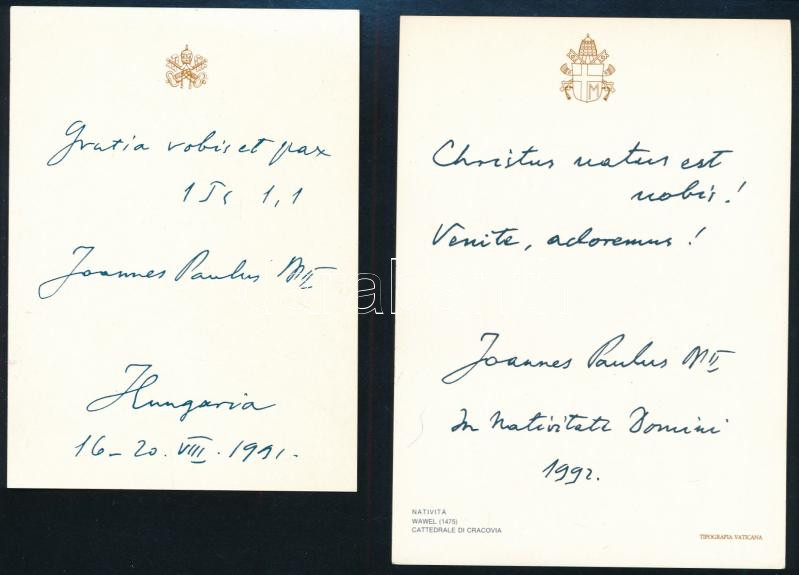 Gratia vobis et pax
1 Ts 1,1
Joannes Paulus PP II
Hungaria
16-20. VIII. 1991.
M
Christus natus est
nobis!
Venite, adoremus!
Joannes Paulus PP II
In Nativitate Domini
1992.
NATIVITÀ
WAWEL (1475)
CATTEDRALE DI CRACOVIA
TIPOGRAFIA VATICANA